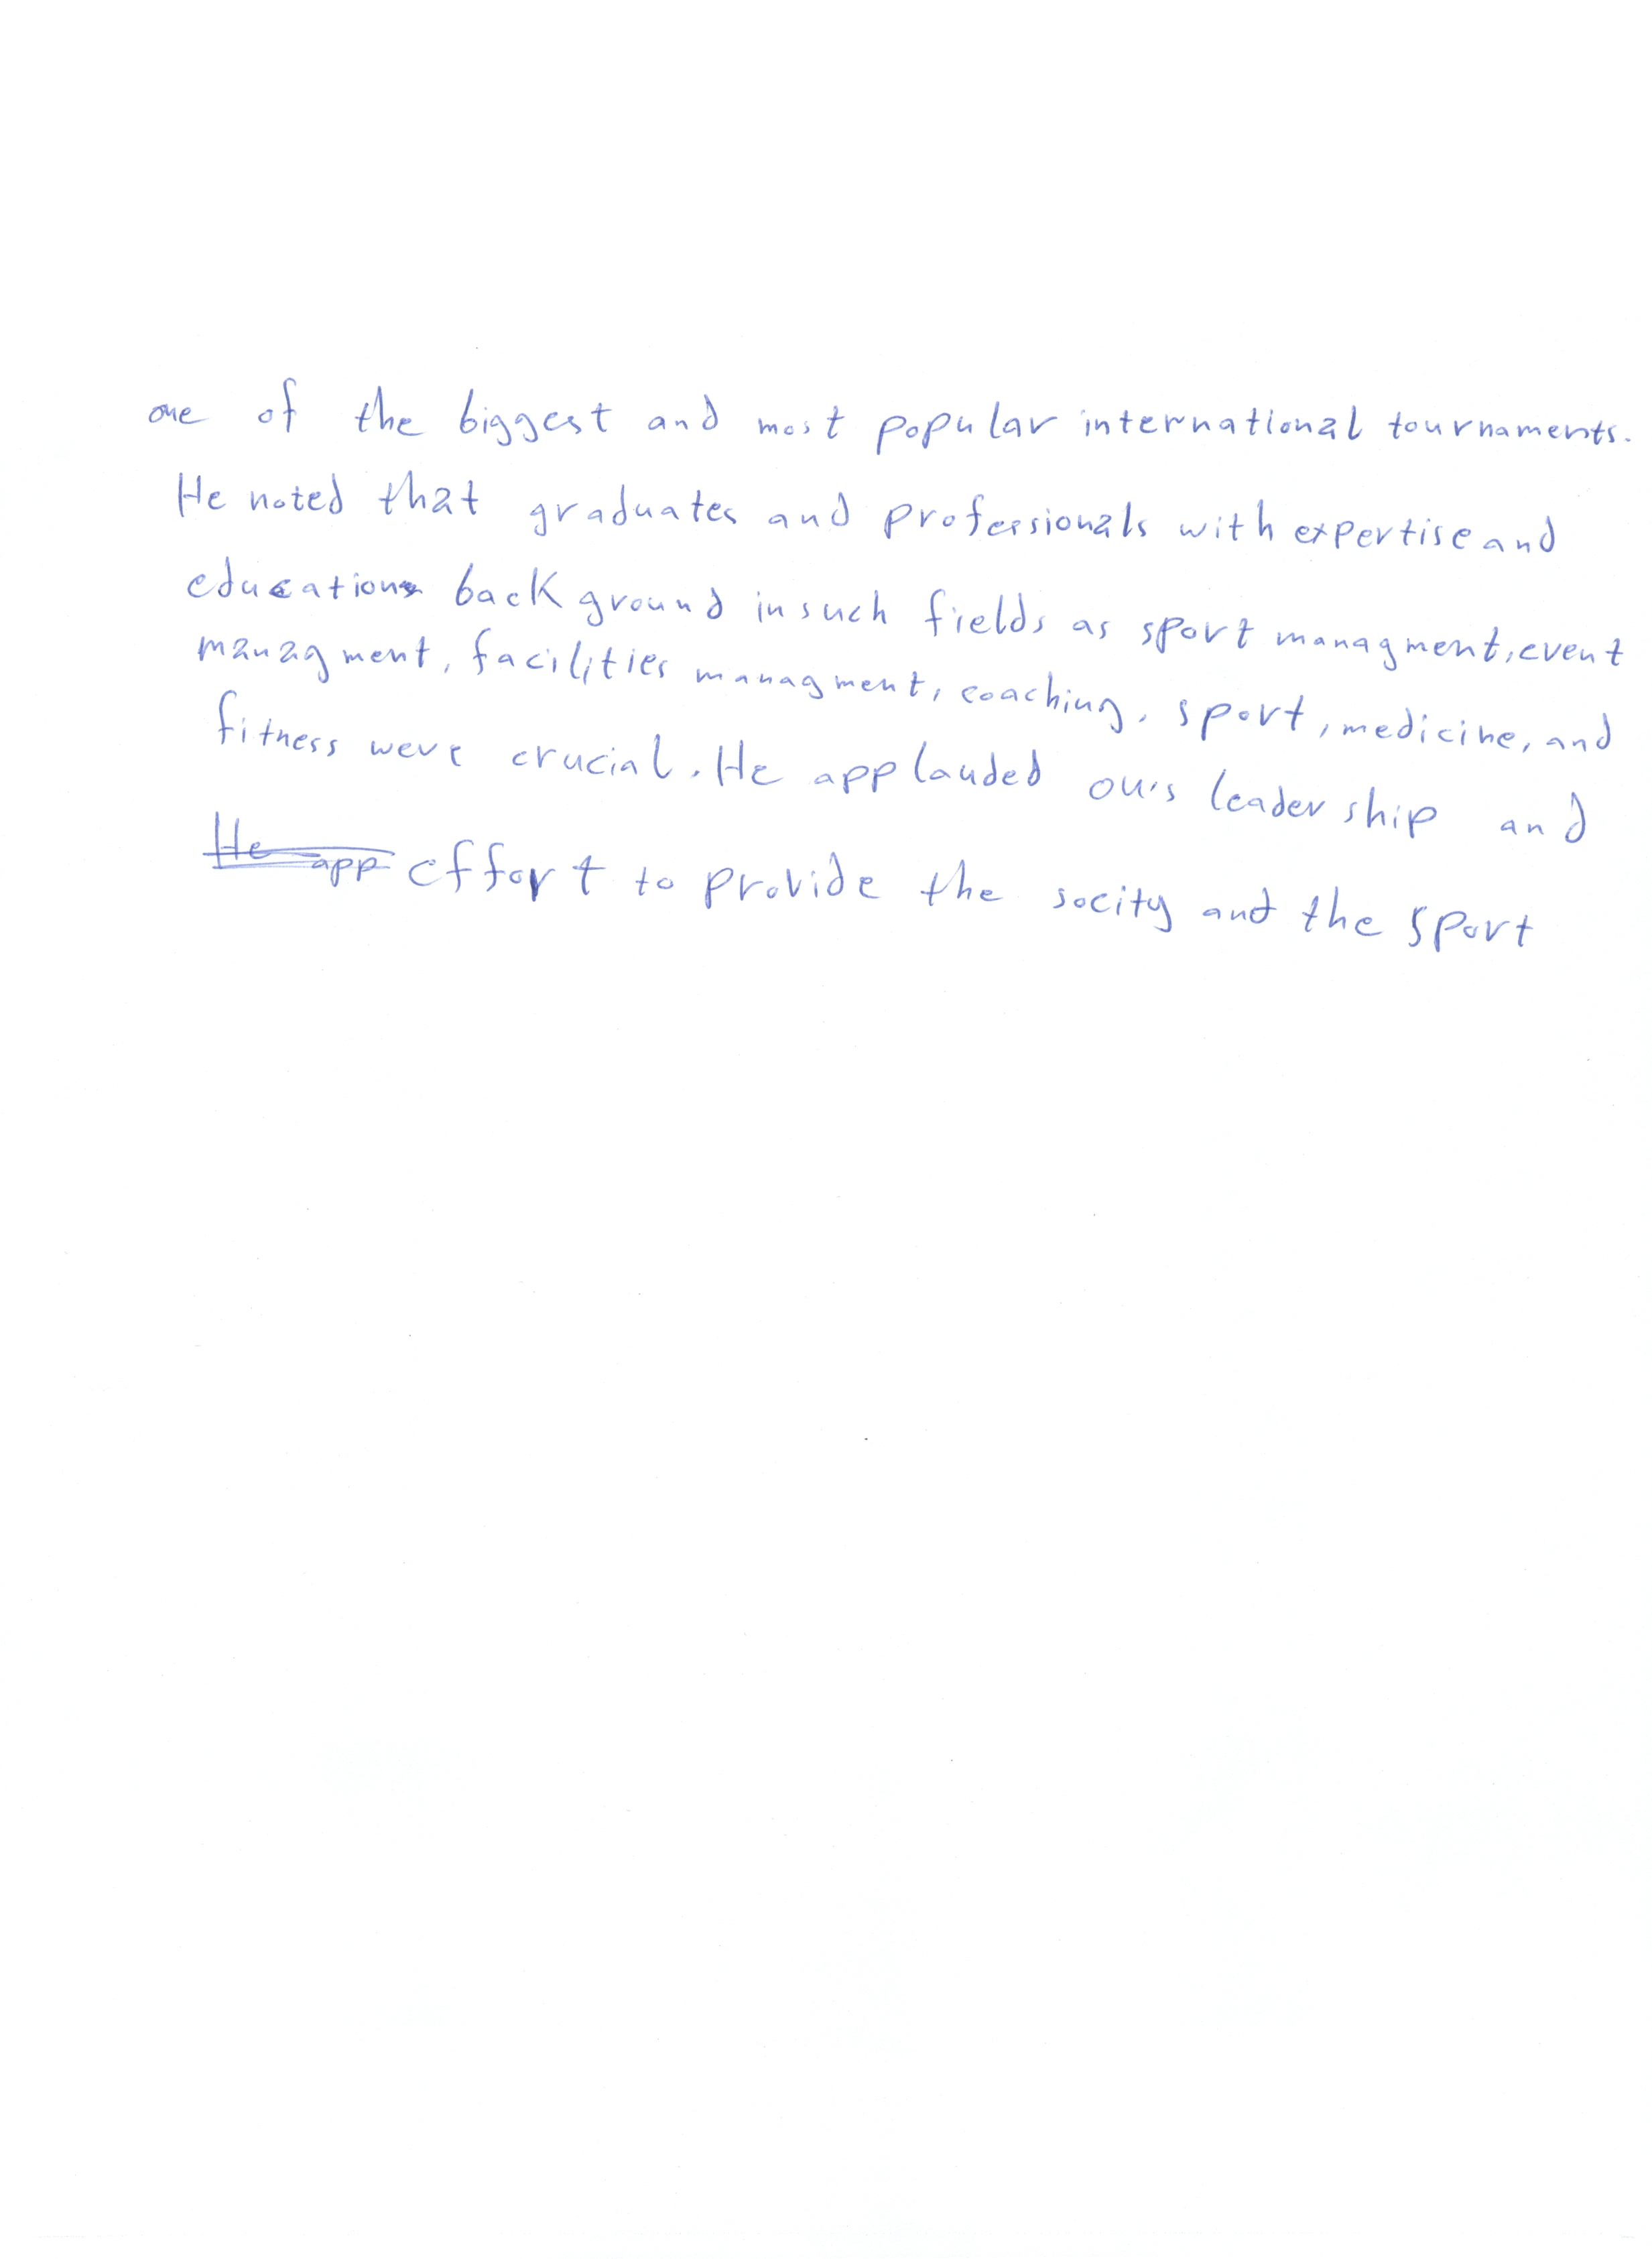 one of the biggest and most popular international tournaments.
He noted that graduates and professionals with expertise and
education background in such fields as sport managment, event
managment, facilities managment, coaching, sport, medicine, and
fitness were crucial. He applauded our's leadership and
He app effort to provide the socity and the sport